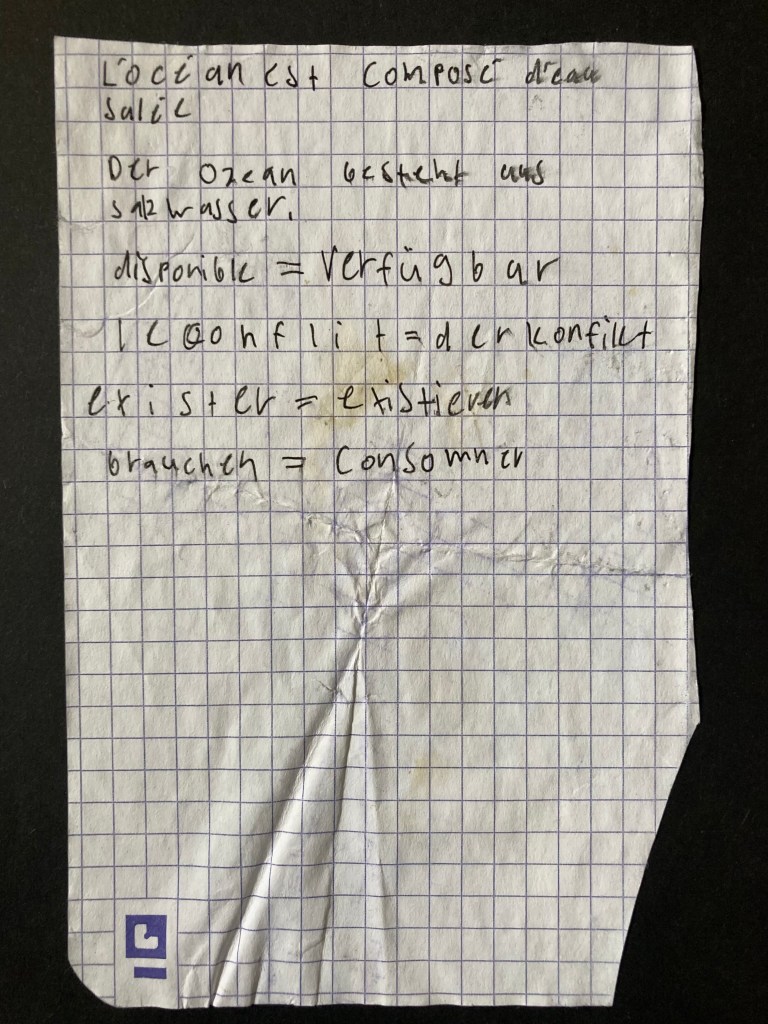 L'océan est composé d'eau
salée
Der Ozean besteht aus
salzwasser.
disponible = Verfügbar
le conflit = der konfikt
exister = existieren
brauchen = Consommer